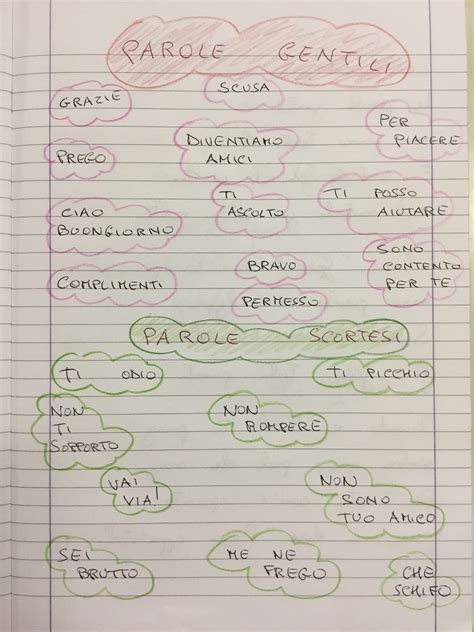 PAROLE GENTILI
GRAZIE
SCUSA
PER
PIACERE
PREGO
DIVENTIAMO
AMICI
CIAO
BUONGIORNO
TI
ASCOLTO
TI POSSO
AIUTARE
COMPLIMENTI
BRAVO
SONO
CONTENTO
PER TE
PERMESSO
PAROLE SCORTESI
TI ODIO
TI PICCHIO
NON
TI
SOPPORTO
NON
ROMPERE
VAI
VIA!
NON
SONO
TUO AMICO
SEI
BRUTTO
ME NE
FREGO
CHE
SCHIFO